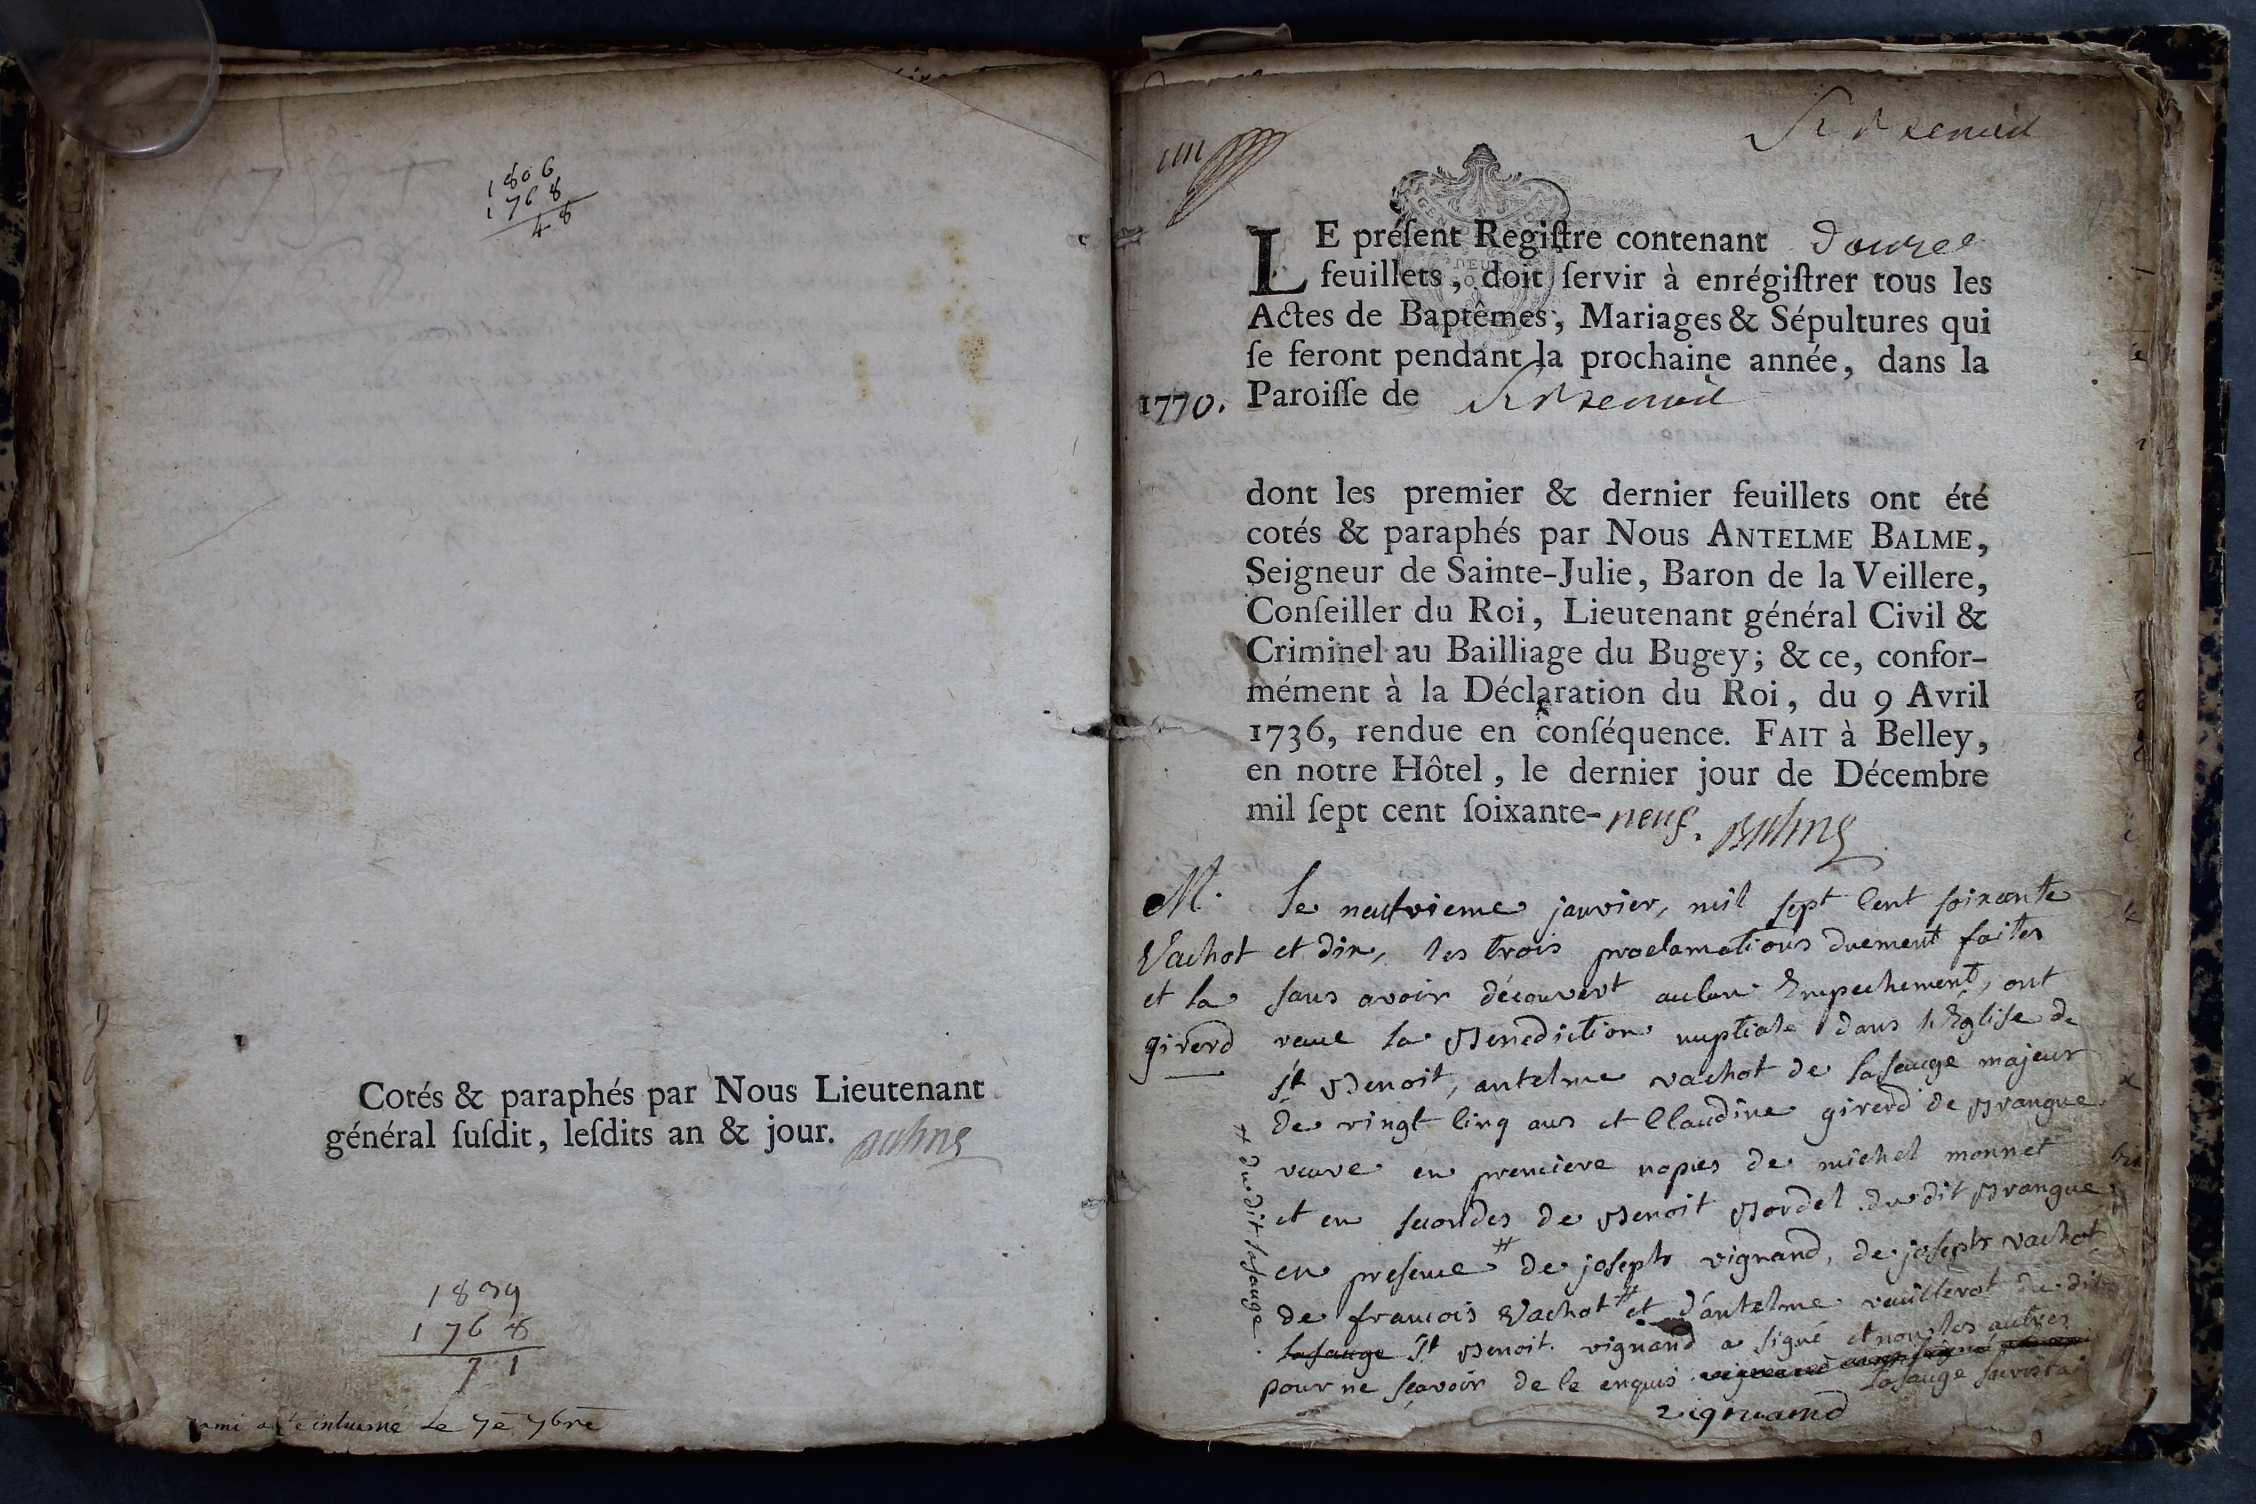 1806
1768
48
Cotés & paraphés par Nous Lieutenant
général ſuſdit, leſdits an & jour. Balme
1839
1768
71
inhumé Le 7e 7bre
St Benoit
LE préſent Regiſtre contenant douze
feuillets, doit ſervir à enrégiſtrer tous les
Actes de Baptêmes, Mariages & Sépultures qui
ſe feront pendant la prochaine année, dans la
1770. Paroiſſe de St Benoit
dont les premier & dernier feuillets ont été
cotés & paraphés par Nous ANTELME BALME,
Seigneur de Sainte-Julie, Baron de la Veillere,
Conſeiller du Roi, Lieutenant général Civil &
Criminel au Bailliage du Bugey; & ce, confor-
mément à la Déclaration du Roi, du 9 Avril
1736, rendue en conſéquence. FAIT à Belley,
en notre Hôtel, le dernier jour de Décembre
mil ſept cent ſoixante-neuf. Balme
M.
Vachot
et la
girerd
le neufvieme janvier, mil sept cent soixante
et dix, les trois proclamations duement faites
sans avoir découvert aucun Empechement, ont
recue la Benediction nuptiale dans l'Eglise de
st Benoit, antelme vachot de lasauge majeur
de vingt cinq ans et Claudine girerd de Brangue
veuve en premiere nopces de michel monnet
et en secondes de Benoit Bordel du dit Brangue,
en presence # de joseph vignand, de joseph vachot
de francois Vachot # et d'antelme vuillerot du dit
lasauge st Benoit. vignand a signé et non les autres
pour ne sçavoir de ce enquis
+ du dit lasauge
vignand